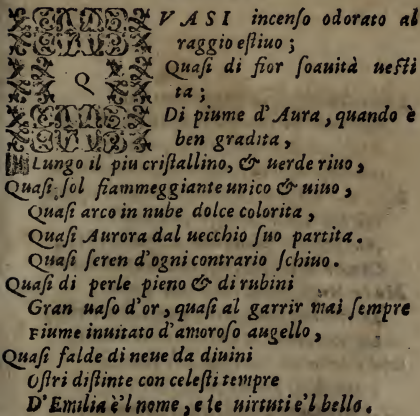 QVASI incenſo odorato al
raggio eſtiuo;
Quaſi di fior ſoauità ueſti
ta;
Di piume d'Aura, quando è
ben gradita,
Lungo il piu criſtallino, & uerde riuo,
Quaſi ſol fiammeggiante unico & uiuo,
Quaſi arco in nube dolce colorita,
Quaſi Aurora dal uecchio ſuo partita.
Quaſi ſeren d'ogni contrario ſchiuo.
Quaſi di perle pieno & di rubini
Gran uaſo d'or, quaſi al garrir mai ſempre
Fiume inuitato d'amoroſo augello,
Quaſi falde di neue da diuini
Oſtri diſtinte con celeſti tempre
D'Emilia è'l nome, e le uirtuti e'l bello.